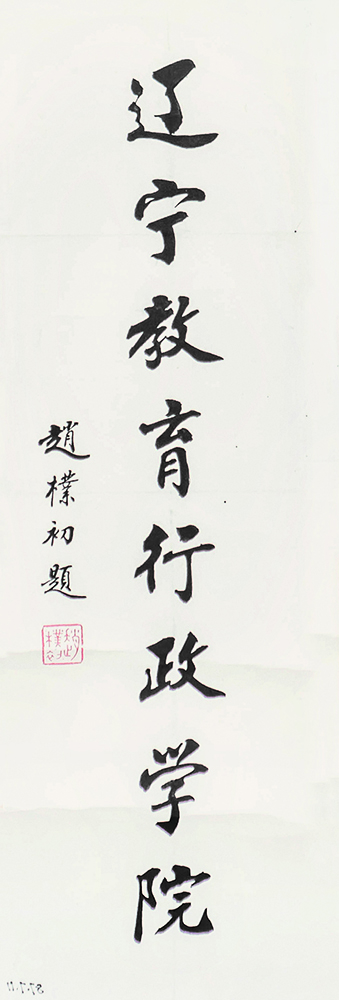 辽宁教育行政学院
趙樸初題
趙樸初